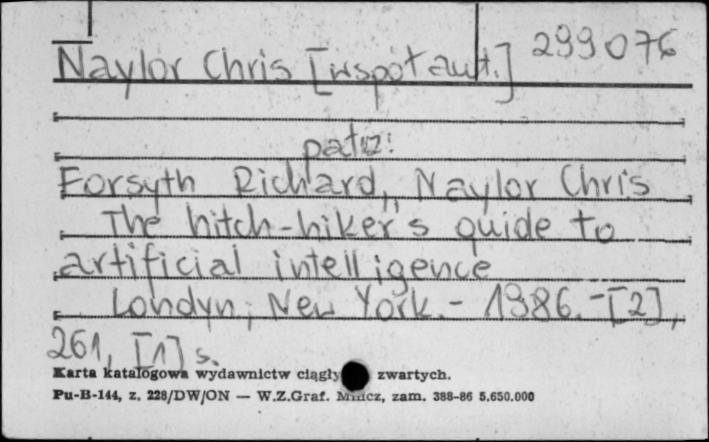 Naylor Chris [współaut.] 299076
patrz:
Forsyth Richard, Naylor Chris
The hitch-hiker's guide to
artificial intelligence
Londyn; New York. - 1986. - [2],
261, [1] s.
Karta katalogowa wydawnictw ciągły zwartych.
Pu-B-144, z. 228/DW/ON — W.Z.Graf. zam. 388-86 5.650.000